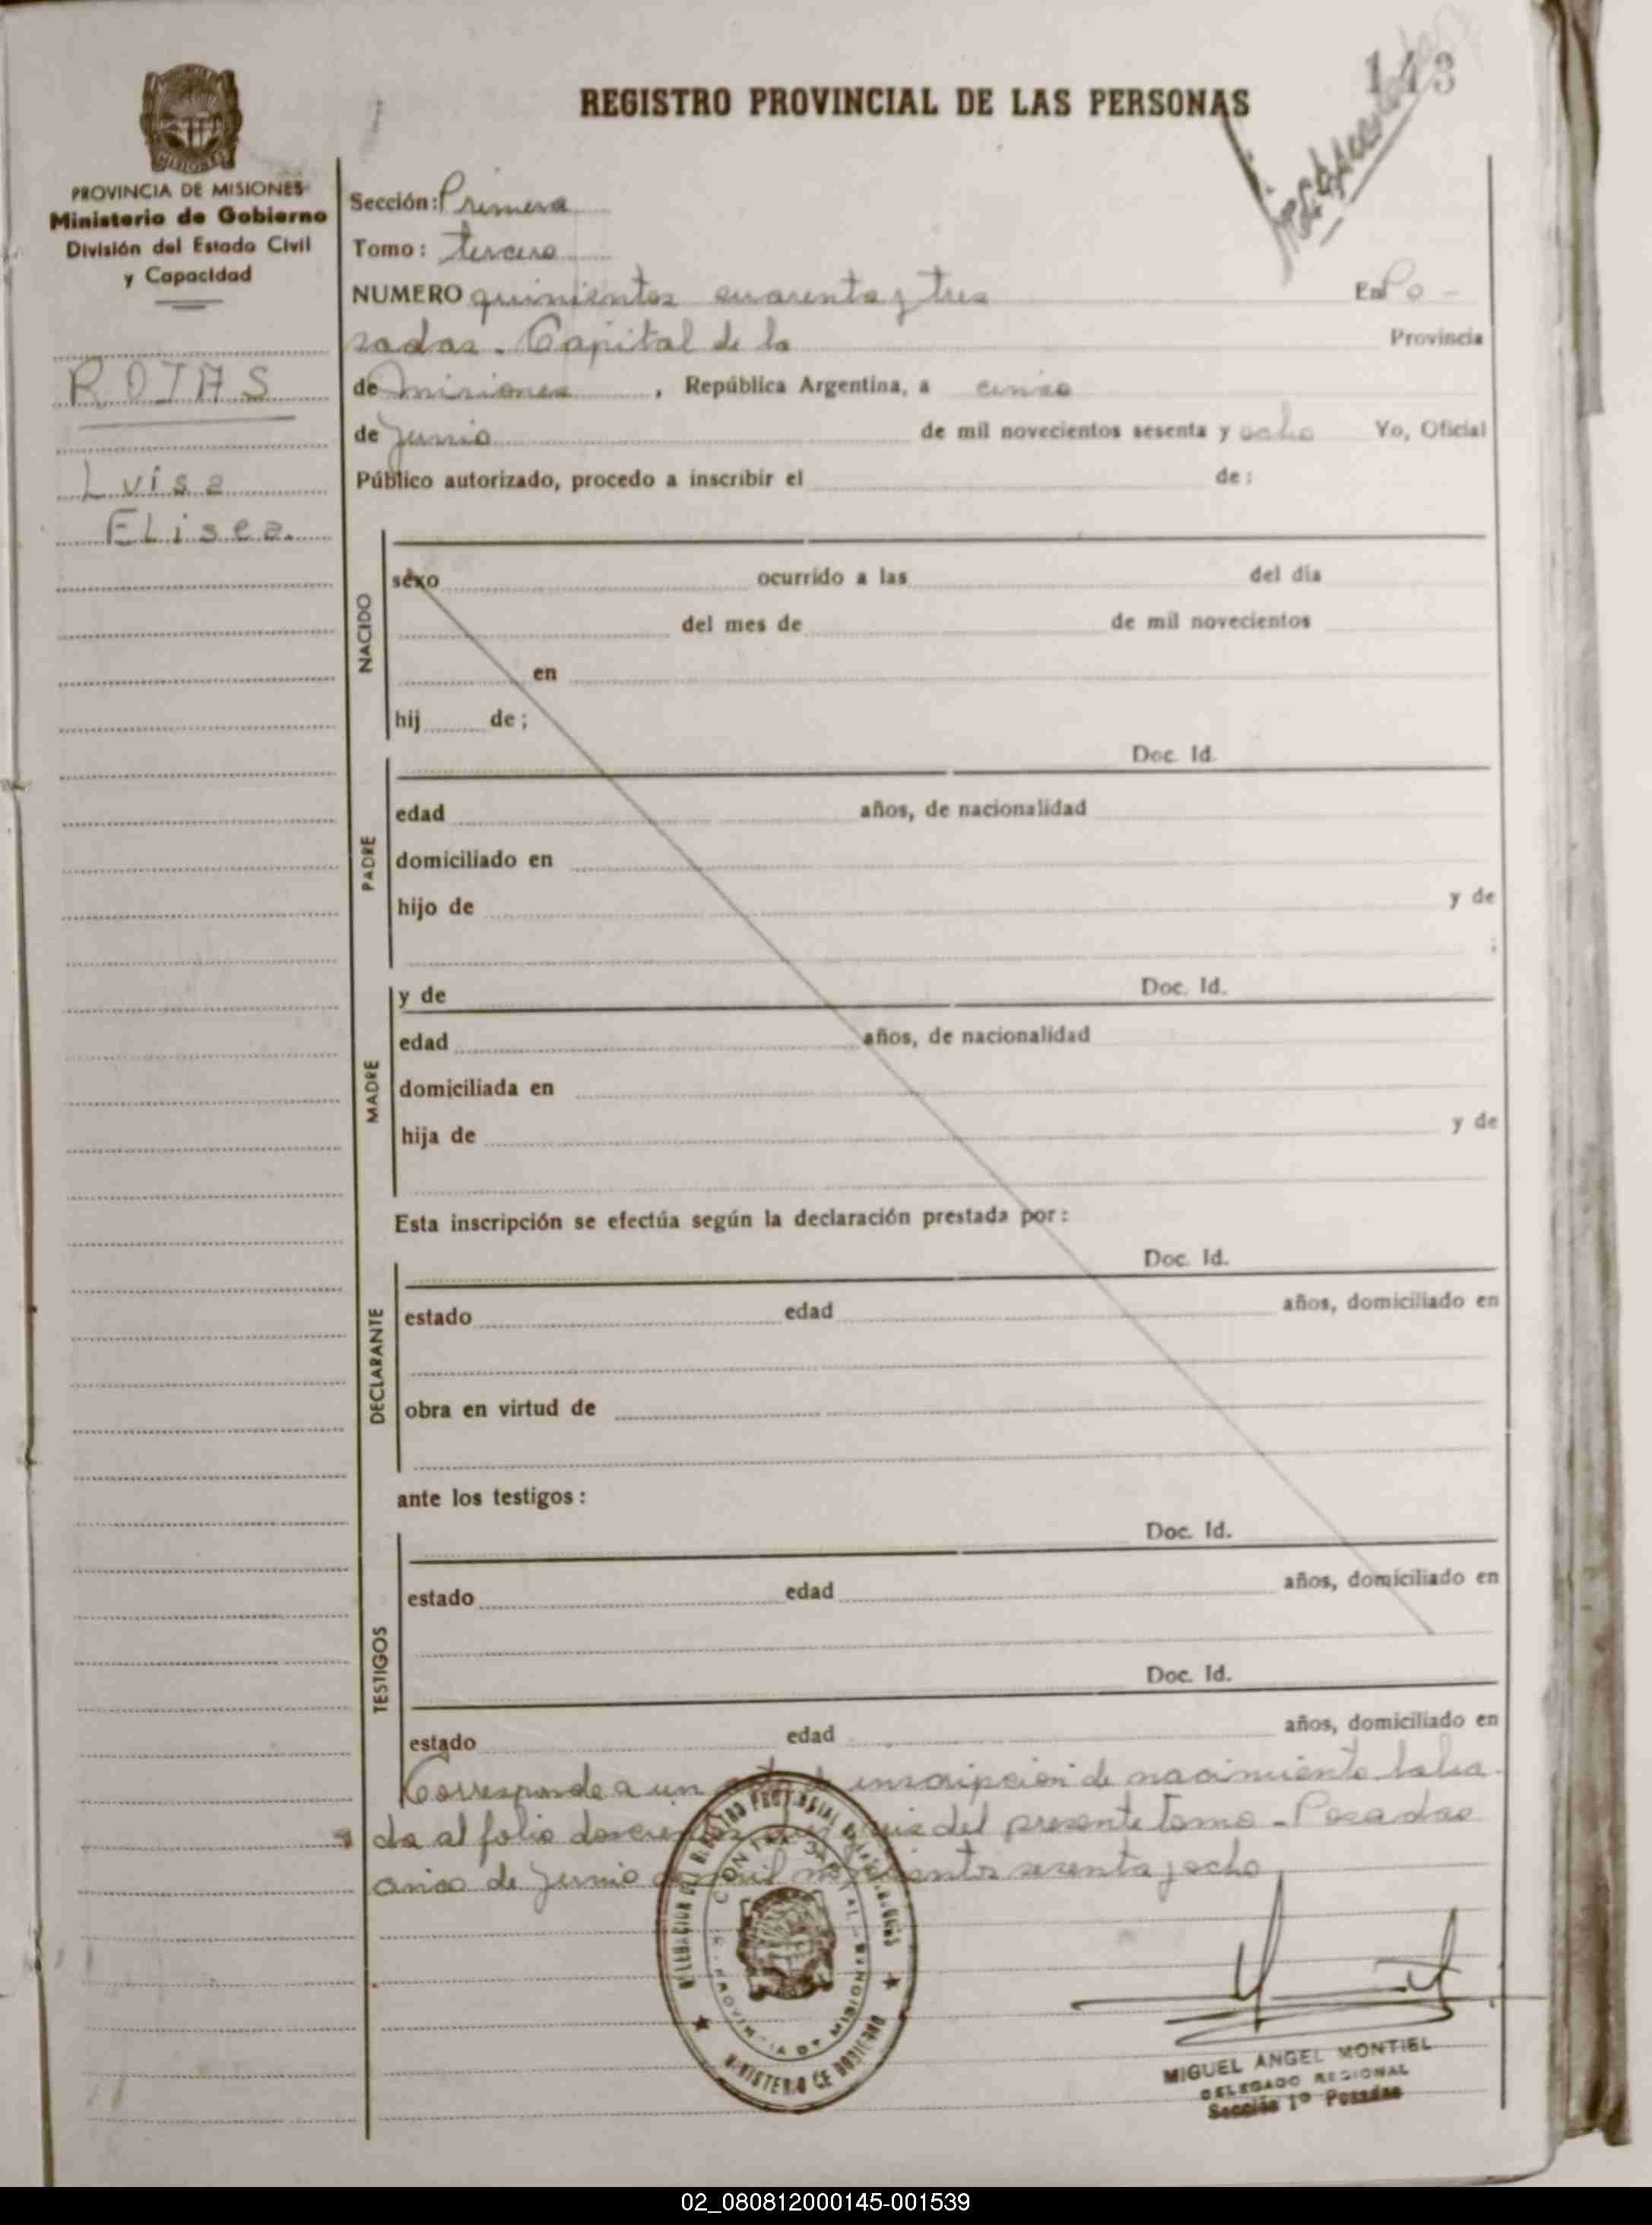 143
REGISTRO PROVINCIAL DE LAS PERSONAS
MISIONES
PROVINCIA DE MISIONES
Ministerio de Gobierno
División del Estado Civil
y Capacidad
ROJAS
Luisa
Elisea.
Sección: Primera
Tomo: tercero
NUMERO quinientos cuarenta y tres En Po-
sadas. Capital de la Provincia
de Misiones, República Argentina, a cinco
de Junio de mil novecientos sesenta y ocho Yo, Oficial
Público autorizado, procedo a inscribir el de:
NACIDO
sexo ocurrido a las del día
del mes de de mil novecientos
en
hij de;
PADRE
Doc. Id.
edad años, de nacionalidad
domiciliado en
hijo de y de
;
MADRE
y de Doc. Id.
edad años, de nacionalidad
domiciliada en
hija de y de
Esta inscripción se efectúa según la declaración prestada por:
DECLARANTE
Doc. Id.
estado edad años, domiciliado en
obra en virtud de
ante los testigos:
TESTIGOS
Doc. Id.
estado edad años, domiciliado en
Doc. Id.
estado edad años, domiciliado en
Corresponde a un inscripción de nacimiento labra-
da al folio del presente tomo - Posadas
cinco de Junio de mil novecientos sesenta y ocho
PROVINCIA DE MISIONES
MINISTERIO DE GOBIERNO
MIGUEL ANGEL MONTIEL
DELEGADO REGIONAL
Sección 1º Posadas
02_080812000145-001539